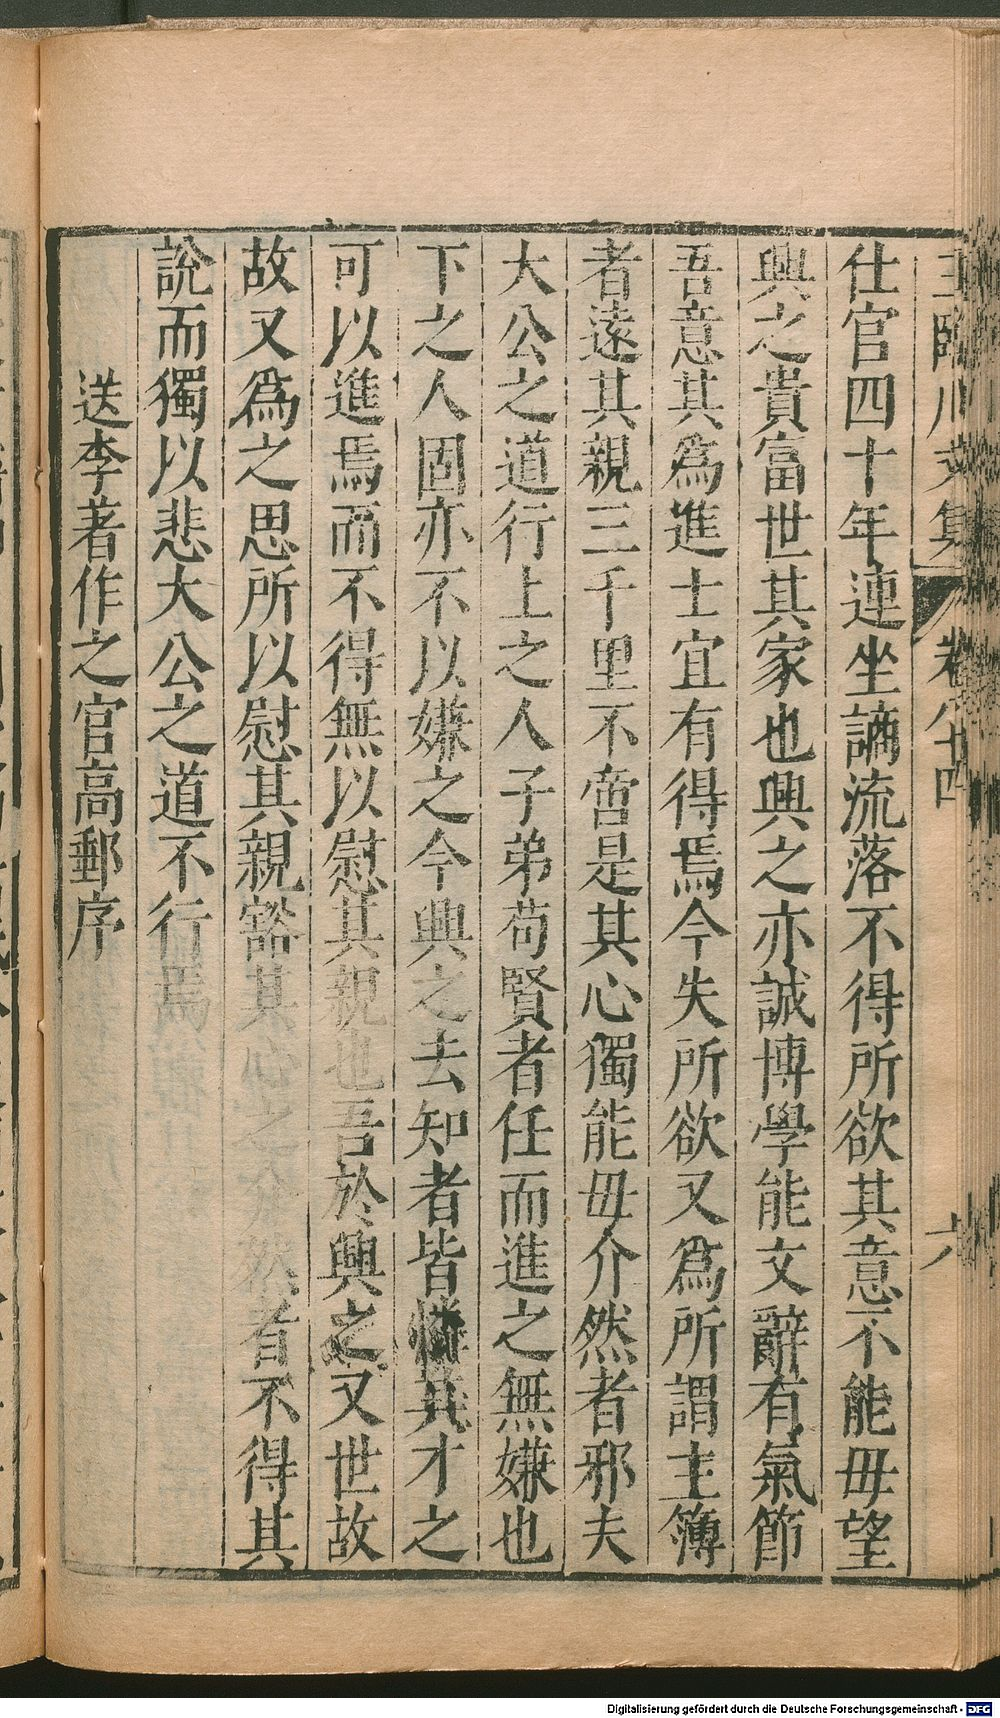 王臨川文集　卷八十四　六
仕官四十年連坐謫流落不得所欲其意不能毋望
興之貴富世其家也興之亦誠博學能文辭有氣節
吾意其爲進士宜有得焉今失所欲又爲所謂主簿
者遠其親三千里不啻是其心獨能毋介然者邪夫
大公之道行上之人子弟苟賢者任而進之無嫌也
下之人固亦不以嫌之今興之去知者皆憐其才之
可以進焉而不得無以慰其親也吾於興之又世故
故又爲之思所以慰其親豁其心之介然者不得其
說而獨以悲大公之道不行焉
送李著作之官高郵序
Digitalisierung gefördert durch die Deutsche Forschungsgemeinschaft - DFG